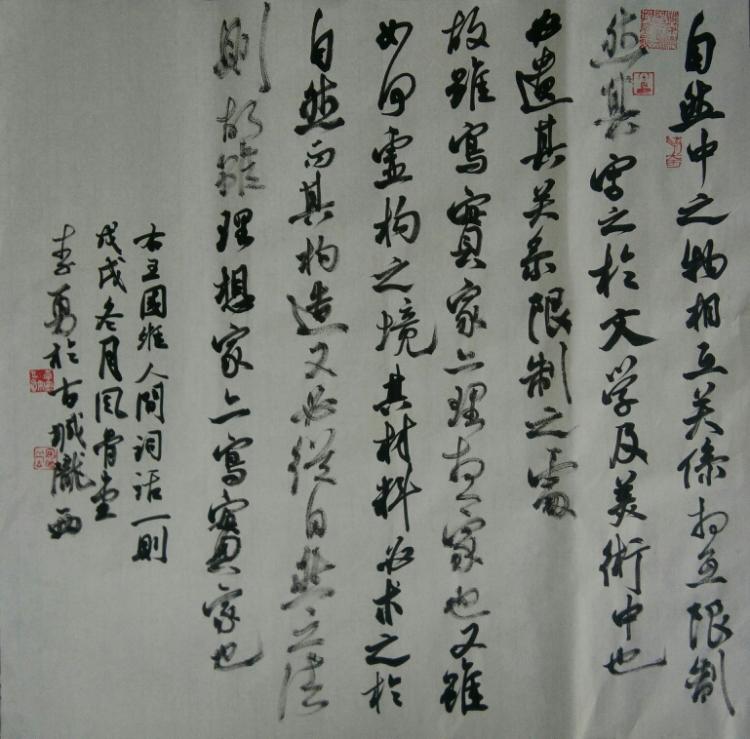 自然中之物相互关係相互限制
然其写之於文学及美術中也
必遺其关系限制之處
故雖寫實家亦理想家也又雖
如何虛构之境其材料必求之於
自然而其构造又必從自然之法
則故雖理想家亦寫實家也
右王國维人間词话一則
戊戌冬月风骨堂
李勇於古城隴西